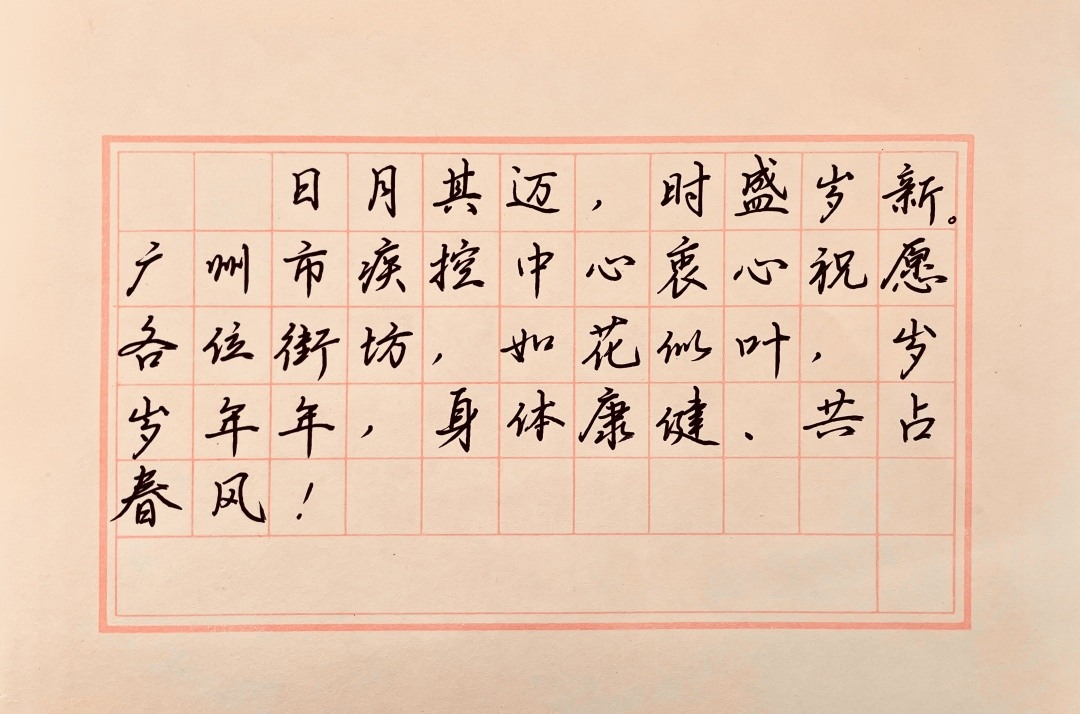 日月其迈，时盛岁新。
广州市疾控中心衷心祝愿
各位街坊，如花似叶，岁
岁年年，身体康健、共占
春风！